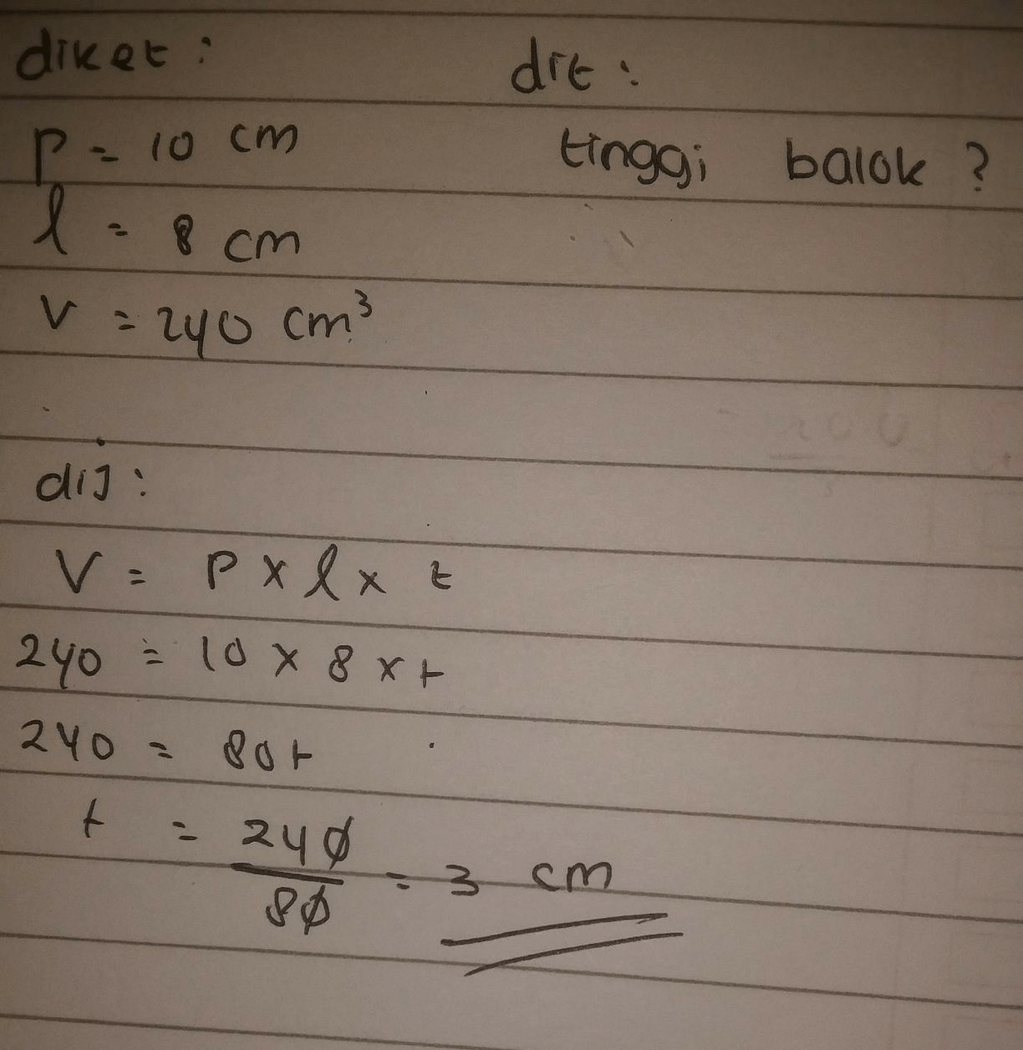 diket : dit :
P = 10 cm tinggi balok ?
l = 8 cm
V = 240 cm³
dij :
V = P x l x t
240 = 10 x 8 x t
240 = 80t
t = 240/80 = 3 cm